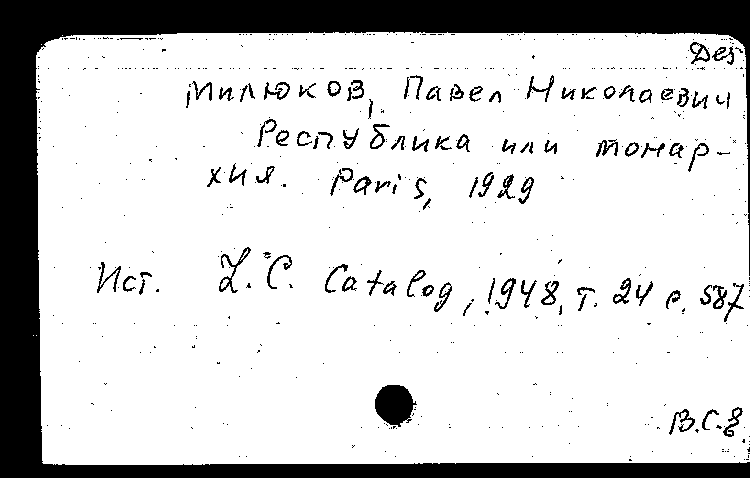 Des
Милюков, Павел Николаевич
Республика или монар-
хия. Paris, 1929
Ист. L.C. Catalog, 1948, т. 24 с. 587